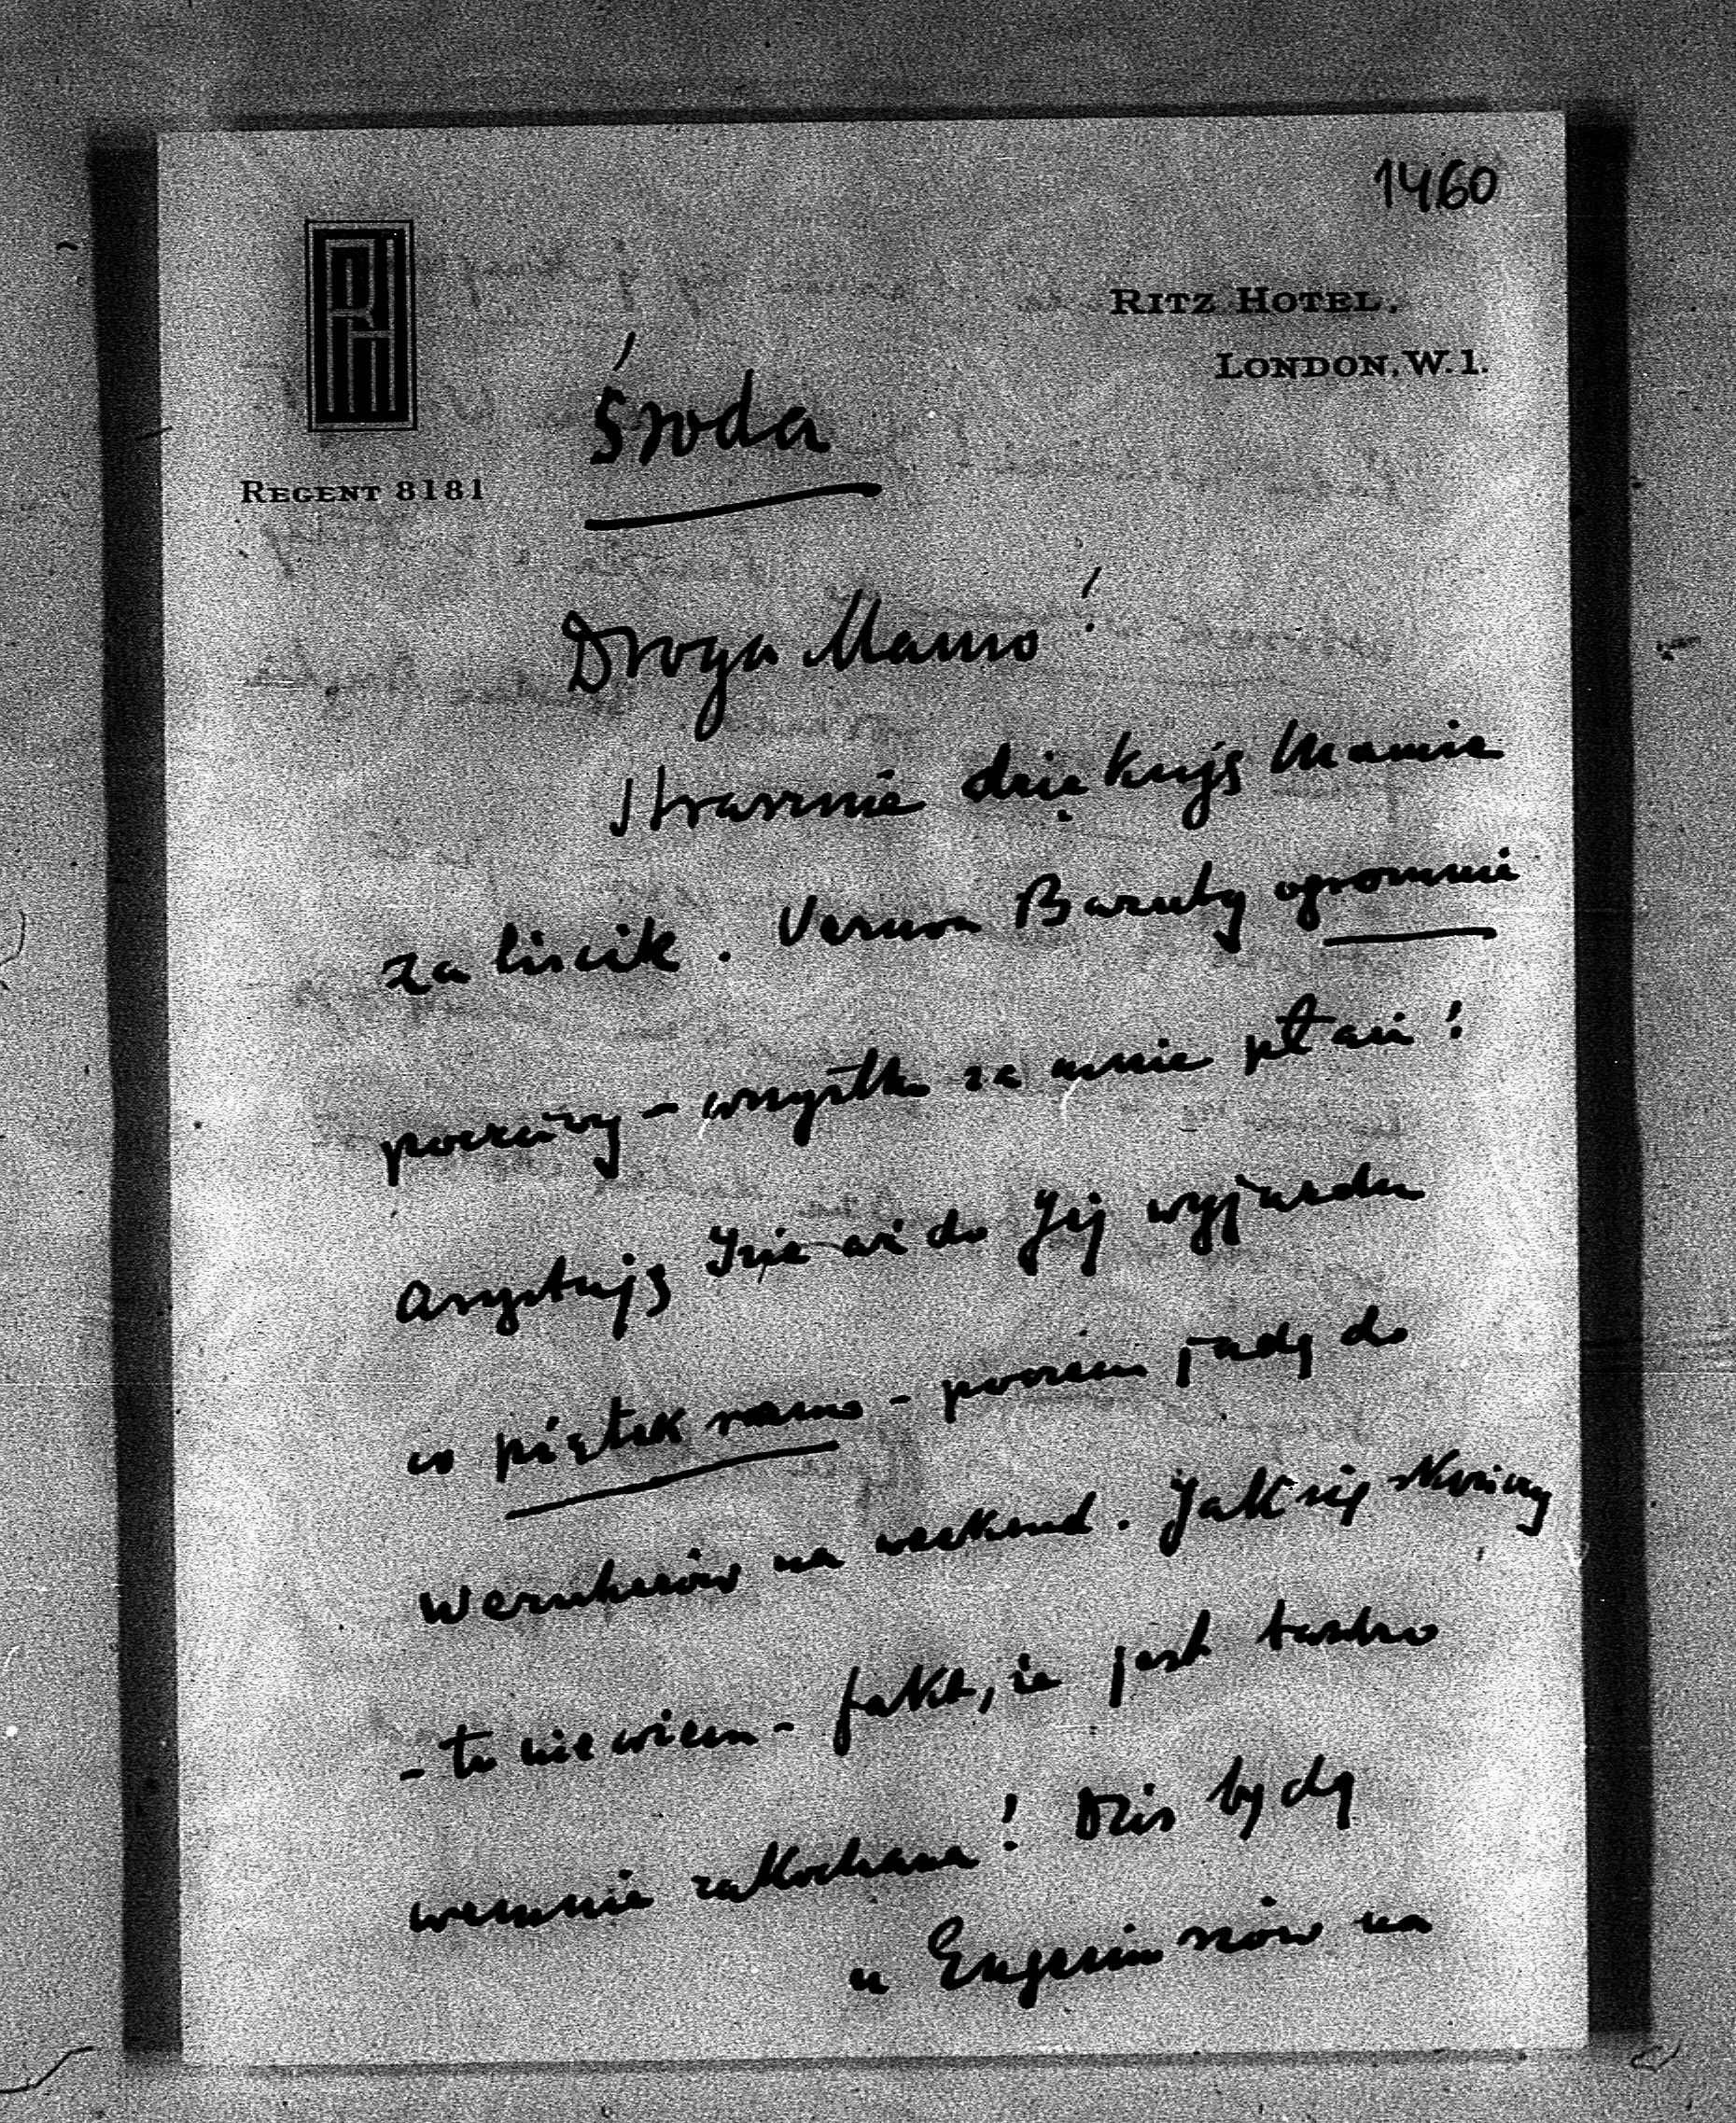 1460
RH
RITZ HOTEL,
LONDON, W.1.
REGENT 8181
Środa
Droga Mamo!
Strasznie dziękuję Mamie
za liścik. Vernon ogromnie
poczciwy - wszystko za mnie płaci!
Asystuję Izie aż do Jej wyjazdu
w piątek rano - poczem jadę do
Wernherów na weekend. Jak się skończy
- to nie wiem - fakt, że jest
zakochana! Dziś będę
u na